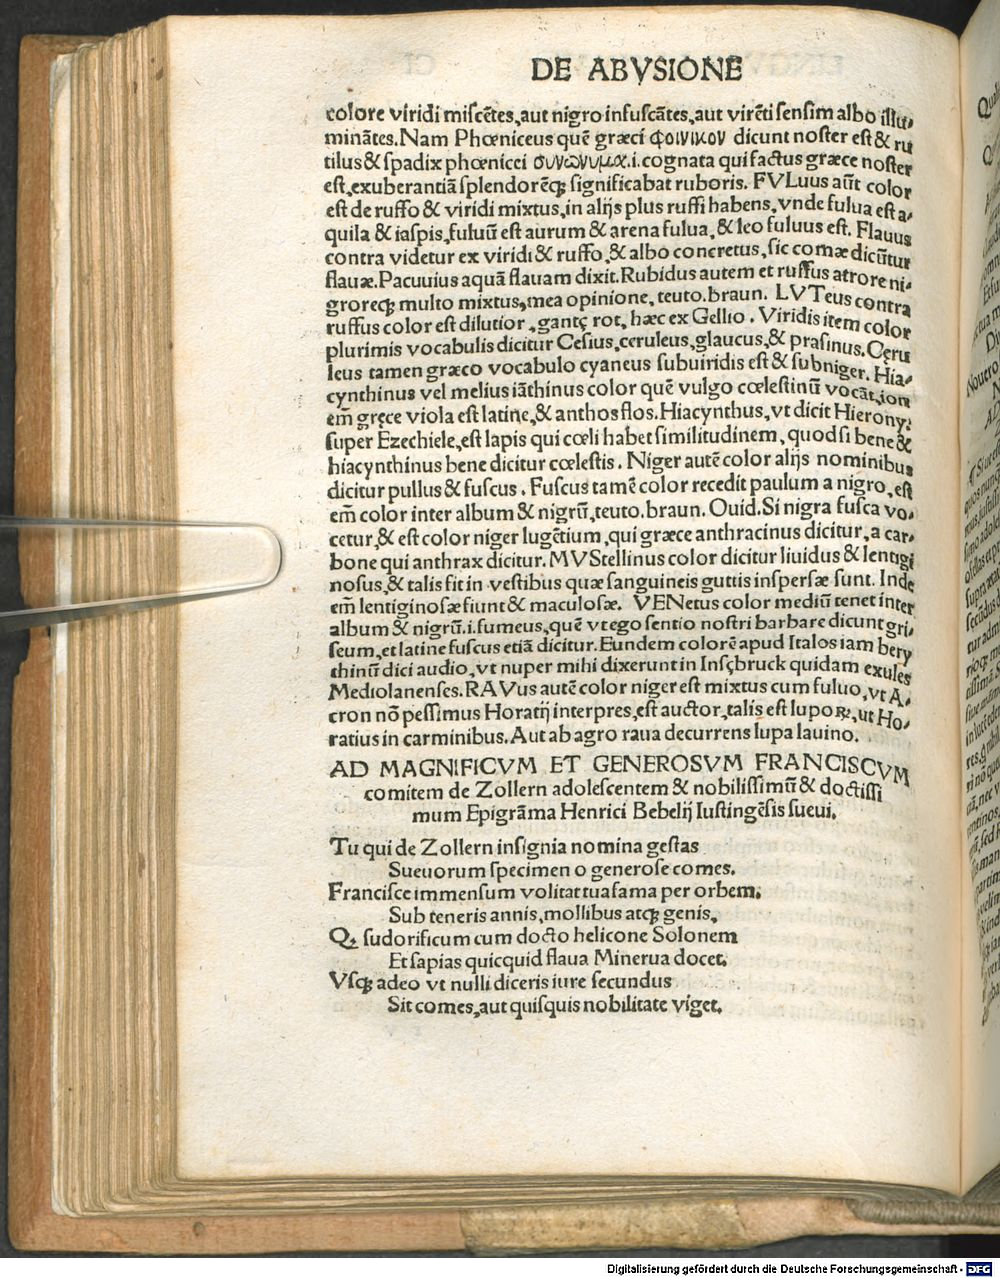 DE ABVSIONE
colore viridi miscẽtes,aut nigro infuscãtes,aut virẽti sensim albo illu-
minãtes.Nam Phœniceus quẽ græci φοινικον dicunt noster est & ru
tilus & spadix phœnicei συνωνυμα.i.cognata qui factus græce noster
est,exuberantiã splendorẽq; significabat ruboris. FVLuus aũt color
est de ruffo & viridi mixtus,in alijs plus ruffi habens,vnde fulua est a-
quila & iaspis,fuluũ est aurum & arena fulua,& leo fuluus est. Flauus
contra videtur ex viridi & ruffo,& albo concretus,sic comæ dicũtur
flauæ.Pacuuius aquã flauam dixit.Rubidus autem et ruffus atrore ni-
groreq; multo mixtus,mea opinione,teuto.braun. LVTeus contra
ruffus color est dilutior,gantę rot,hæc ex Gellio. Viridis item color
plurimis vocabulis dicitur Cesius,ceruleus,glaucus,& prasinus.Cęru
leus tamen græco vocabulo cyaneus subuiridis est & subniger. Hia-
cynthinus vel melius iãthinus color quẽ vulgo cœlestinũ vocãt,ion
em̃ gręce viola est latine,& anthos flos.Hiacynthus,vt dicit Hierony:
super Ezechiele,est lapis qui cœli habet similitudinem,quod si bene &
hiacynthinus bene dicitur cœlestis. Niger autẽ color alijs nominibus
dicitur pullus & fuscus. Fuscus tamẽ color recedit paulum a nigro,est
em̃ color inter album & nigrũ,teuto.braun. Ouid.Si nigra fusca vo-
cetur,& est color niger lugẽtium,qui græce anthracinus dicitur,a car-
bone qui anthrax dicitur. MVStellinus color dicitur liuidus & lentigi
nosus,& talis fit in vestibus quæ sanguineis guttis inspersæ sunt. Inde
em̃ lentiginosæ fiunt & maculosæ. VENetus color mediũ tenet inter
album & nigrũ.i.fumeus,quẽ vt ego sentio nostri barbare dicunt gri-
seum,et latine fuscus etiã dicitur.Eundem colorẽ apud Italos iam bery
thinũ dici audio,vt nuper mihi dixerunt in Insçbruck quidam exules
Mediolanenses.RAVus autẽ color niger est mixtus cum fuluo,vt A-
cron nõ pessimus Horatij interpres,est auctor,talis est lupoꝝ,ut Ho-
ratius in carminibus.Aut ab agro raua decurrens lupa lauino.
AD MAGNIFICVM ET GENEROSVM FRANCISCVM
comitem de Zollern adolescentem & nobilissimũ & doctissi
mum Epigrãma Henrici Bebelij Iustingẽsis sueui.
Tu qui de Zollern insignia nomina gestas
Sueuorum specimen o generose comes.
Francisce immensum volitat tua fama per orbem.
Sub teneris annis,mollibus atq; genis,
Qꝫ sudorificum cum docto helicone Solonem
Et sapias quicquid flaua Minerua docet.
Vsq; adeo vt nulli diceris iure secundus
Sit comes,aut quisquis nobilitate viget.
Digitalisierung gefördert durch die Deutsche Forschungsgemeinschaft - DFG